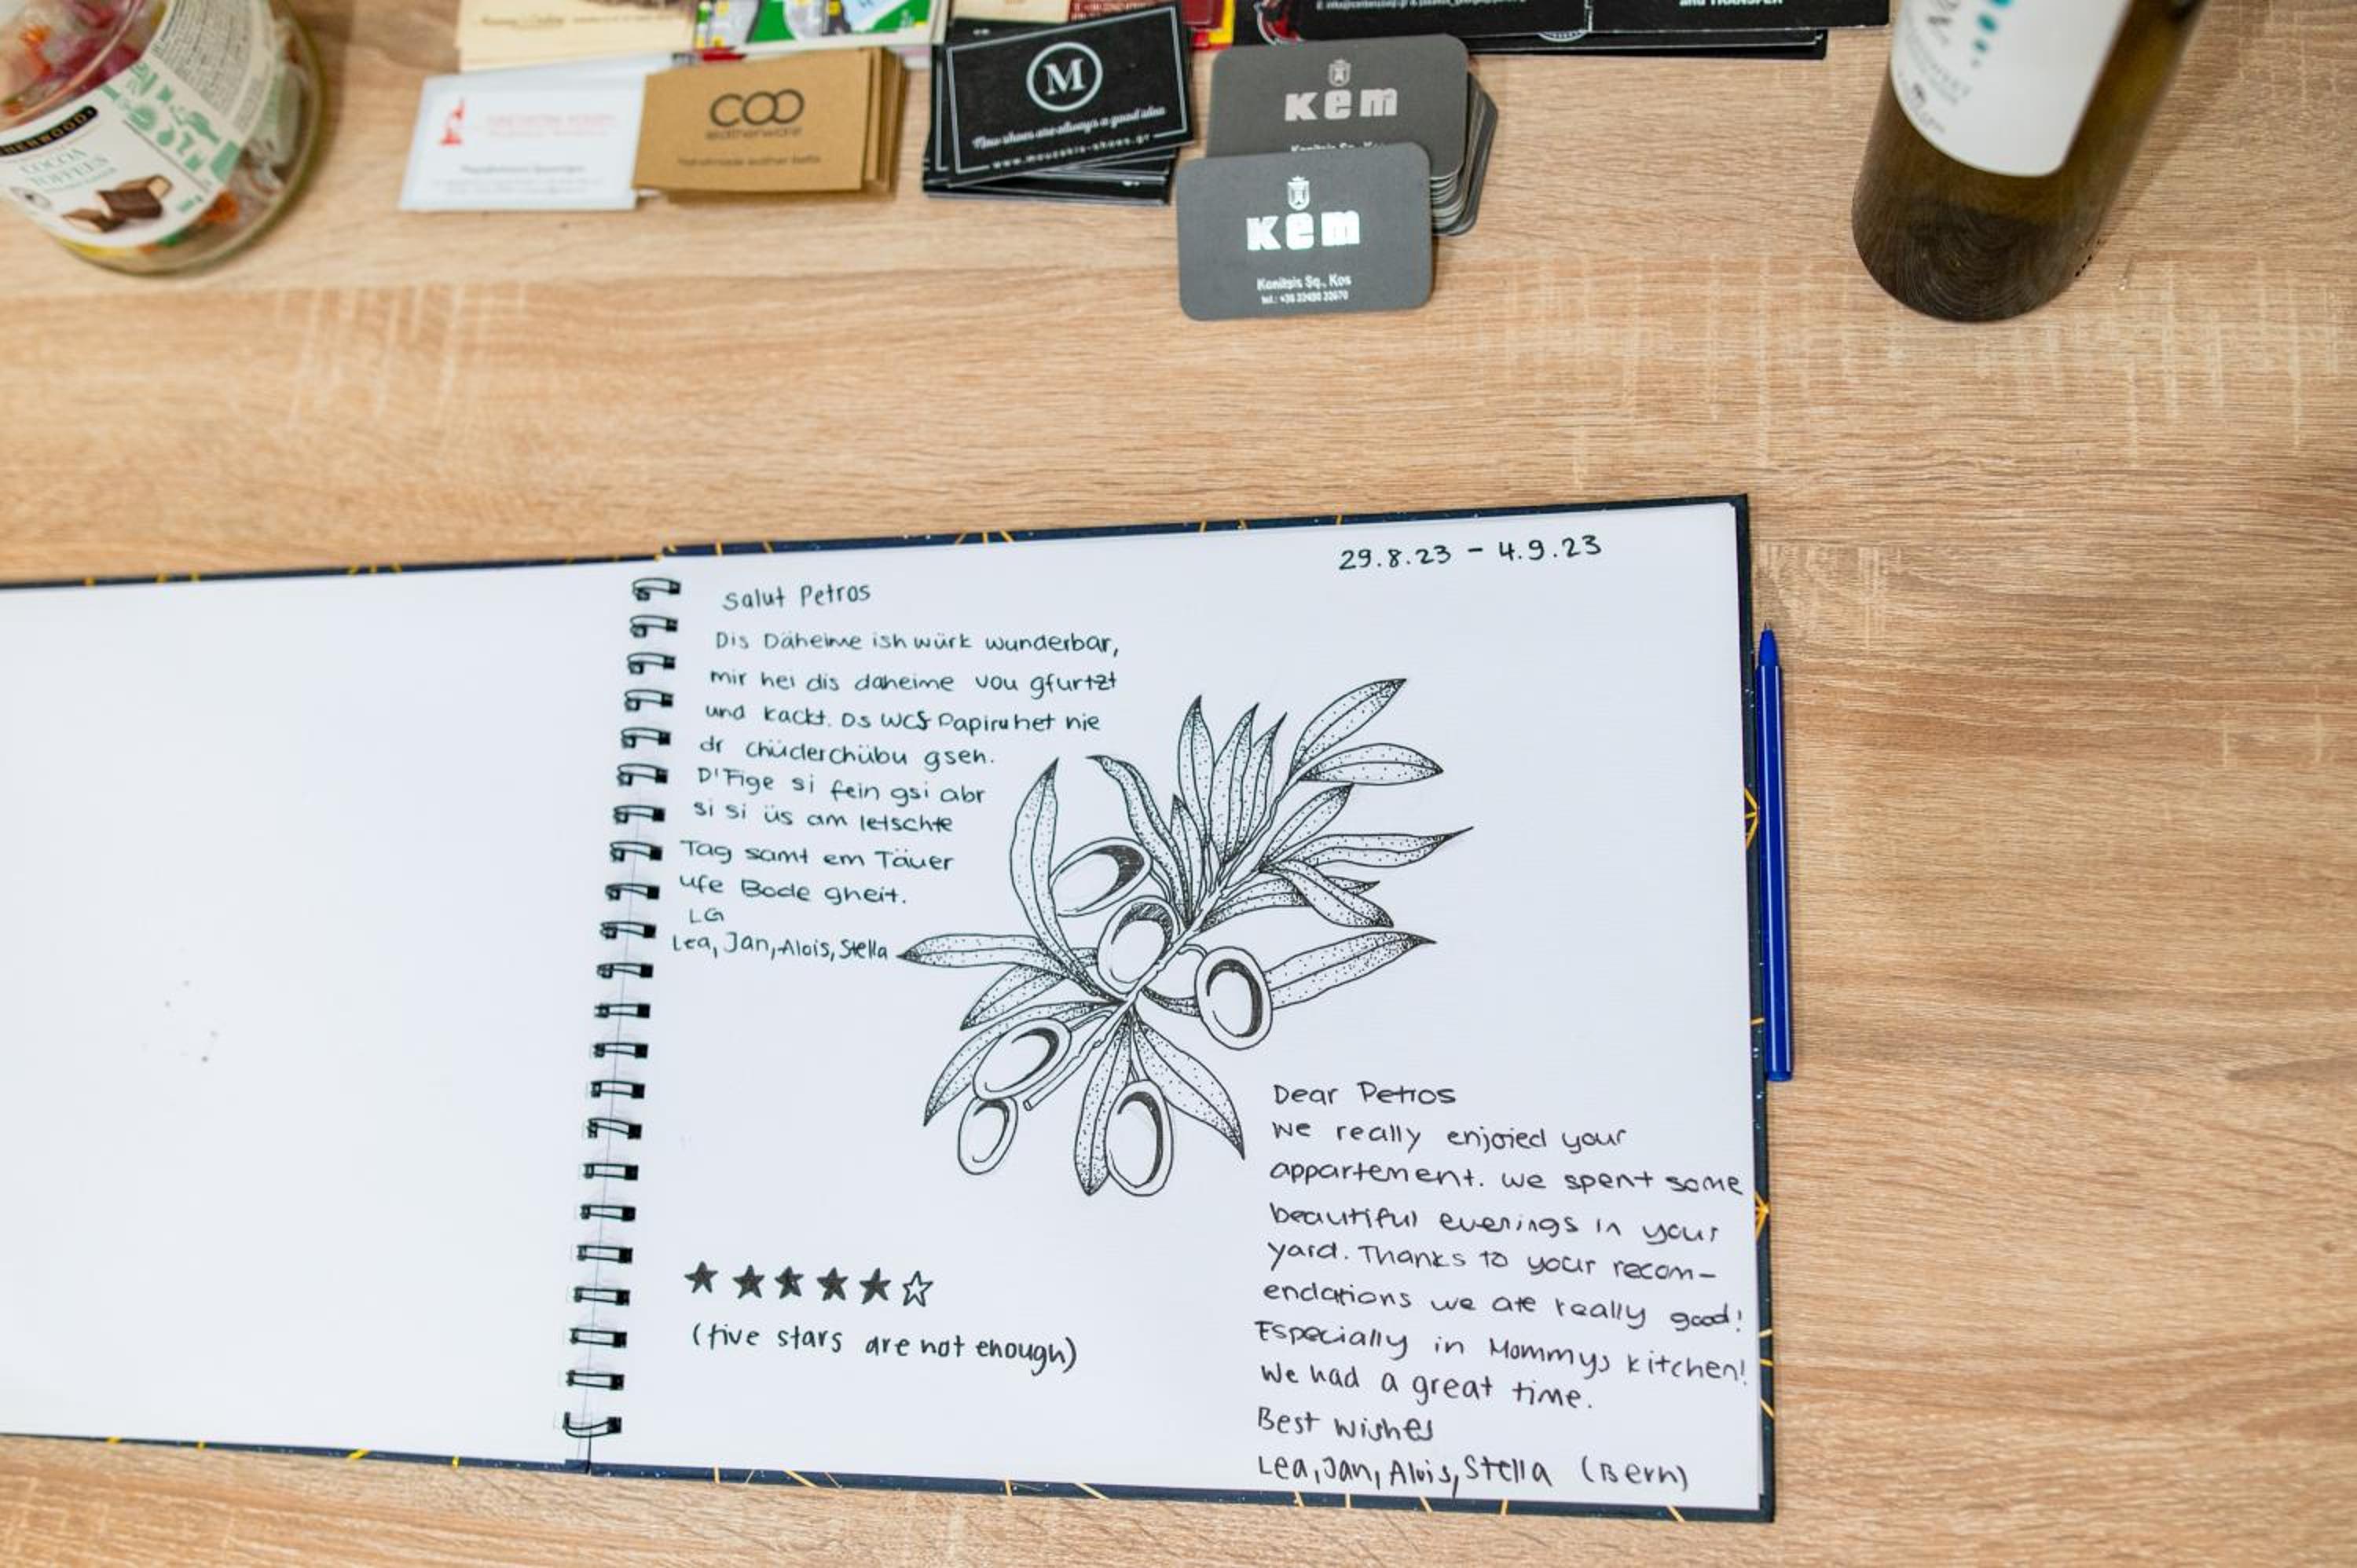 COCOA
TRUFFLES
COO
leatherware
M
New shoes are always a good idea
www.moucakis-shoes.gr
and TRANSFER
kem
kem
Konitsis Sq., Kos
29.8.23 - 4.9.23
Salut Petros
Dis Däheime ish würk wunderbar,
mir hei dis daheime vou gfurtzt
und kackt. Ds WCS Papiru het nie
dr Chüderchübu gseh.
D'Fige si fein gsi abr
si si üs am letschte
Tag samt em Täuer
ufe Bode gheit.
LG
Lea, Jan, Alois, Stella
★★★★★☆
(five stars are not enough)
Dear Petros
we really enjoied your
appartement. we spent some
beautiful evenings in your
yard. Thanks to your recom-
endations we ate really good!
Especially in Mommys kitchen!
We had a great time.
Best wishes
Lea, Jan, Alois, Stella (Bern)